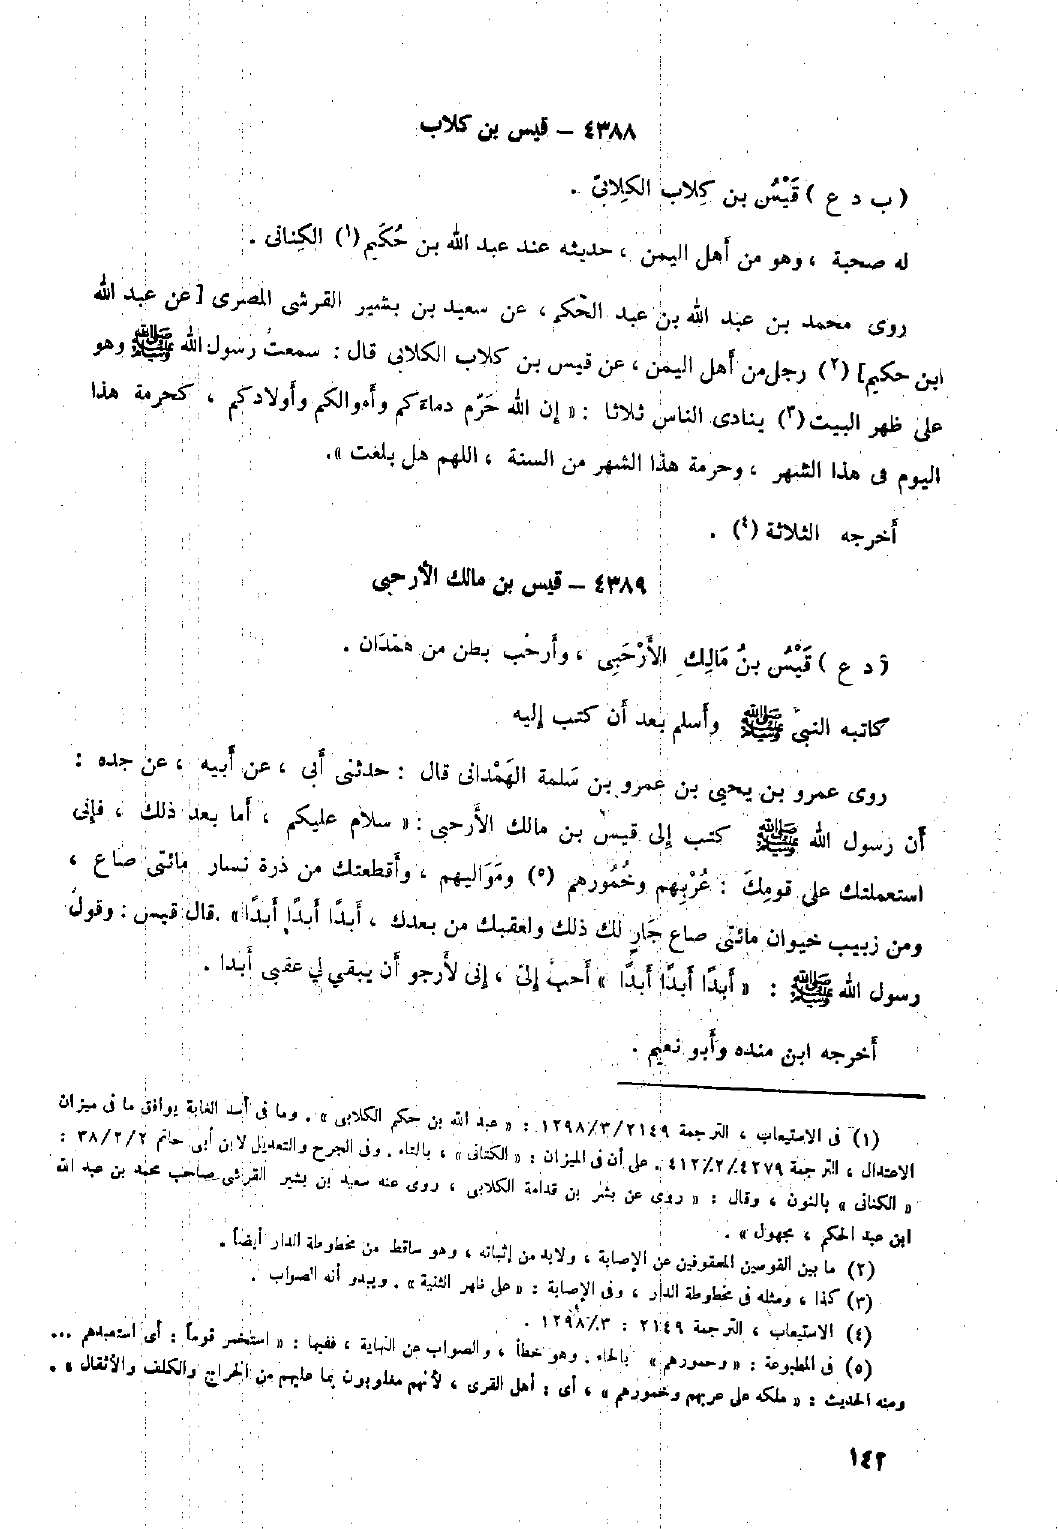 ٤٣٨٨ – قيس بن كلاب
( ب د ع ) قَيْسُ بن كِلاب الكِلابىّ .
له صحبة ، وهو من أهل اليمن ، حديثه عند عبد الله بن حُكَيم (١) الكِنانى .
روى محمد بن عبد الله بن عبد الحكم ، عن سعيد بن بشير القرشى المصرى [ عن عبد الله
ابن حكيم ] (٢) رجل من أهل اليمن ، عن قيس بن كلاب الكلابى قال : سمعتُ رسول الله ﷺ وهو
على ظهر البيت (٣) ينادى الناس ثلاثا : « إن الله حَرّم دماءكم وأموالكم وأولادكم ، كحرمة هذا
اليوم فى هذا الشهر ، وحرمة هذا الشهر من السنة ، اللهم هل بلغت ».
أخرجه الثلاثة (٤) .
٤٣٨٩ – قيس بن مالك الأرحبى
( د ع ) قَيْسُ بنُ مَالِكِ الأَرْحَبِى ، وأرحب بطن من همْدَان .
كاتبه النبىّ ﷺ وأسلم بعد أن كتب إليه
روى عمرو بن يحيى بن عمرو بن سَلمة الهَمْدانى قال : حدثنى أبى ، عن أبيه ، عن جده :
أن رسول الله ﷺ كتب إلى قيس بن مالك الأرحبى : « سلام عليكم ، أما بعد ذلك ، فإنى
استعملتك على قومِكَ : عُرْبِهم وخُمُورهم (٥) ومَوَاليهم ، وأقطعتك من ذرة نسار مائتى صاع ،
ومن زبيب خيوان مائتى صاع جَارٍ لك ذلك ولعقبك من بعدك ، أبدًا أبدًا أبدًا » . قال قيس : وقولُ
رسول الله ﷺ : « أَبدًا أَبدًا أَبدًا » أحبّ إلىّ ، إنى لأرجو أن يبقي لي عقبى أبدا .
أخرجه ابن منده وأبو نعيم .
(١) فى الاستيعاب ، الترجمة ٣/٢١٤٩/ ١٢٩٨ : « عبد الله بن حكم الكلابى » . وما فى أسد الغابة يوافق ما فى ميزان
الاعتدال ، الترجمة ٤٢٧٩/ ٢/ ٤١٢ . على أن فى الميزان : « الكتانى » ، بالتاء . وفى الجرح والتعديل لابن أبى حاتم ٣٨/٢/٢ :
« الكنانى » بالنون ، وقال : « روى عن بشر بن قدامة الكلابى ، روى عنه سعيد بن بشير القرشى صاحب محمد بن عبد الله
ابن عبد الحكم ، مجهول » .
(٢) ما بين القوسين المعقوفين عن الإصابة ، ولابد من إثباته ، وهو ساقط من مخطوطة الدار أيضاً .
(٣) كذا ، ومثله فى مخطوطة الدار ، وفى الإصابة : « على ظهر الثنية » . ويبدو أنه الصواب .
(٤) الاستيعاب ، الترجمة ٢١٤٩ : ٣/ ١٢٩٨ .
(٥) فى المطبوعة : « وحمورهم » بالحاء . وهو خطأ ، والصواب عن النهاية ، ففيها : « استخمر قوماً : أى استعبدهم ...
ومنه الحديث : « ملكه على عربهم وخمورهم » ، أى : أهل القرى ، لأنهم مغلوبون بما عليهم من الخراج والكلف والأثقال » .
١٤٢